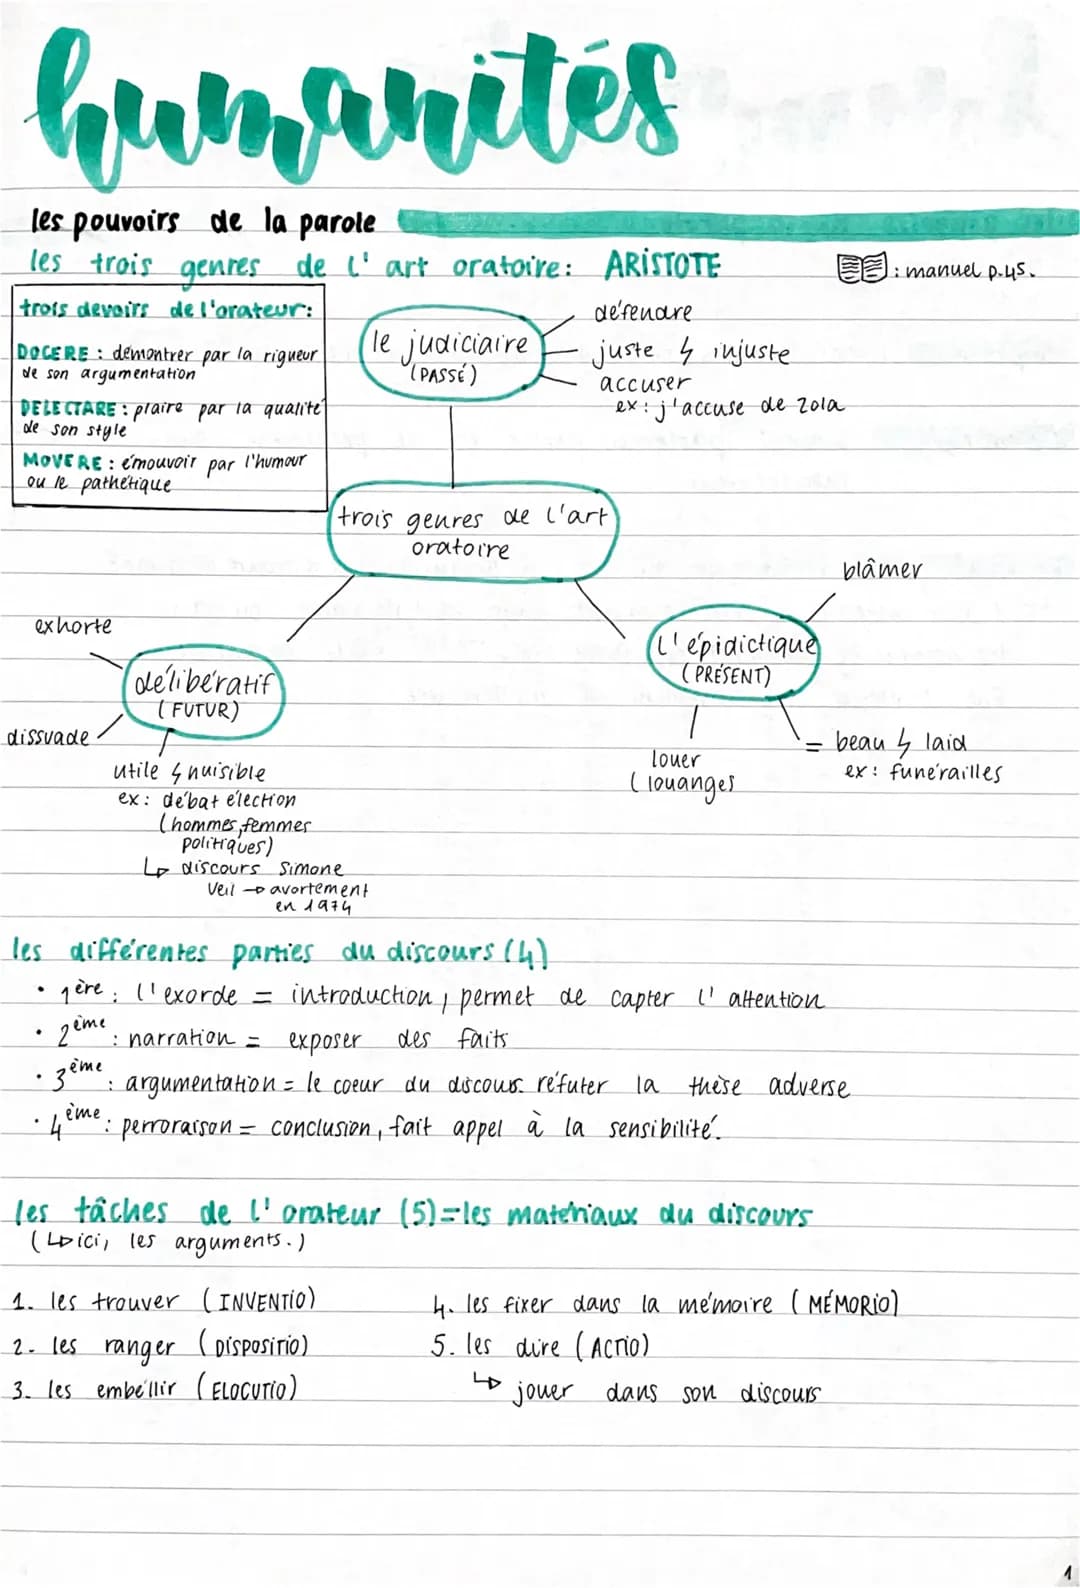 humanités
les pouvoirs de la parole
les trois genres de l'art oratoire : ARISTOTE
: manuel p.45.
trois devoirs de l'orateur :
DOCERE : démontrer par la rigueur
de son argumentation
DELECTARE : plaire par la qualité
de son style
MOVERE : émouvoir par l'humour
ou le pathétique
le judiciaire
(PASSÉ)
défendre
juste ↯ injuste
accuser
ex : j'accuse de Zola
trois genres de l'art
oratoire
exhorte
délibératif
(FUTUR)
dissuade
utile ↯ nuisible
ex : débat élection
(hommes, femmes
politiques)
↳ discours Simone
Veil → avortement
en 1974
blâmer
l'épidictique
(PRÉSENT)
louer
(louanges
= beau ↯ laid
ex : funérailles
les différentes parties du discours (4)
• 1ère : l'exorde = introduction, permet de capter l'attention
• 2ème : narration = exposer des faits
• 3ème : argumentation = le coeur du discours. réfuter la thèse adverse
• 4ème : perroraison = conclusion, fait appel à la sensibilité.
les tâches de l'orateur (5) = les matériaux du discours
(↳ ici, les arguments.)
1. les trouver (INVENTIO)
2. les ranger (DISPOSITIO)
3. les embéllir (ELOCUTIO)
4. les fixer dans la mémoire (MÉMORIO)
5. les dire (ACTIO)
↳ jouer dans son discours
1